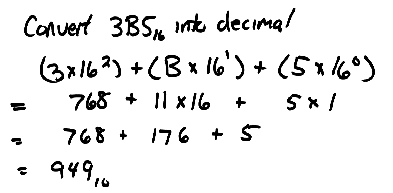 Convert 3B5₁₆ into decimal
(3×16²)+(B×16¹)+(5×16⁰)
= 768 + 11×16 + 5×1
= 768 + 176 + 5
= 949₁₀